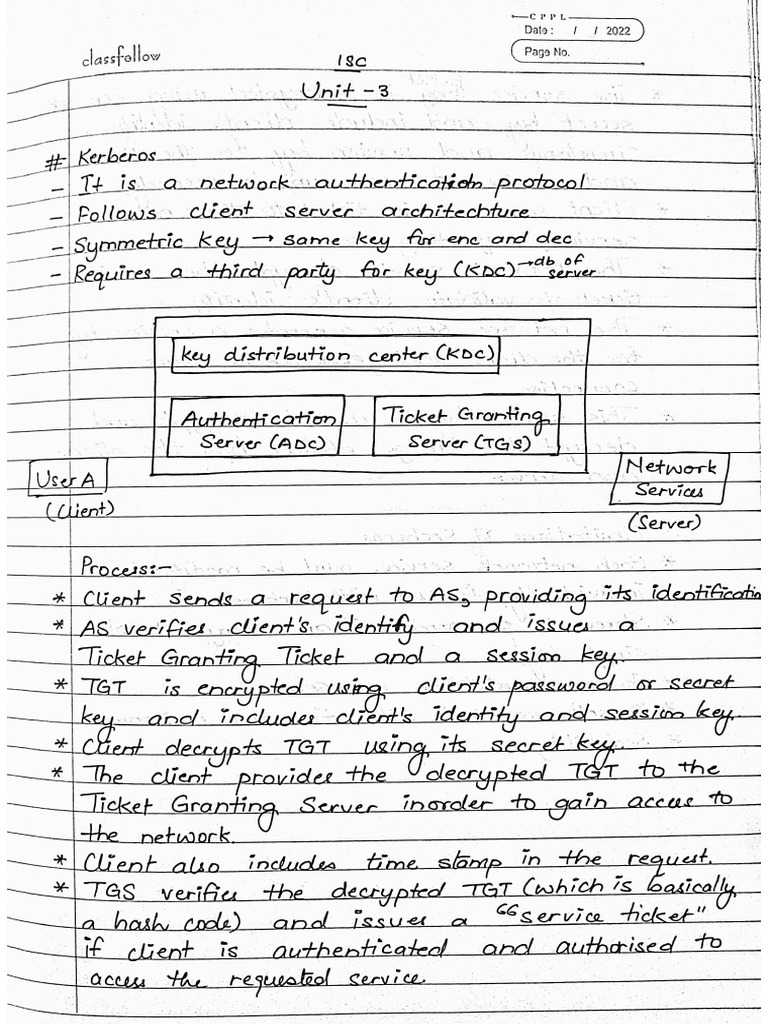 CPPL
Date : / / 2022
Page No.
classfollow
ISC
Unit - 3
# Kerberos
- It is a network authentication protocol
- Follows client server architechture
- Symmetric key → same key for enc and dec
- Requires a third party for key (KDC) → db of server
key distribution center (KDC)
Authentication Server (ADC)
Ticket Granting Server (TGS)
User A
(Client)
Network Services
(Server)
Process:-
* Client sends a request to AS, providing its identification
* AS verifies client's identify and issues a
Ticket Granting Ticket and a session key.
* TGT is encrypted using client's password or secret
key and includes client's identity and session key.
* Client decrypts TGT using its secret key.
* The client provides the decrypted TGT to the
Ticket Granting Server inorder to gain access to
the network.
* Client also includes time stamp in the request.
* TGS verifies the decrypted TGT (which is basically
a hash code) and issues a "service ticket"
if client is authenticated and authorised to
access the requested service.